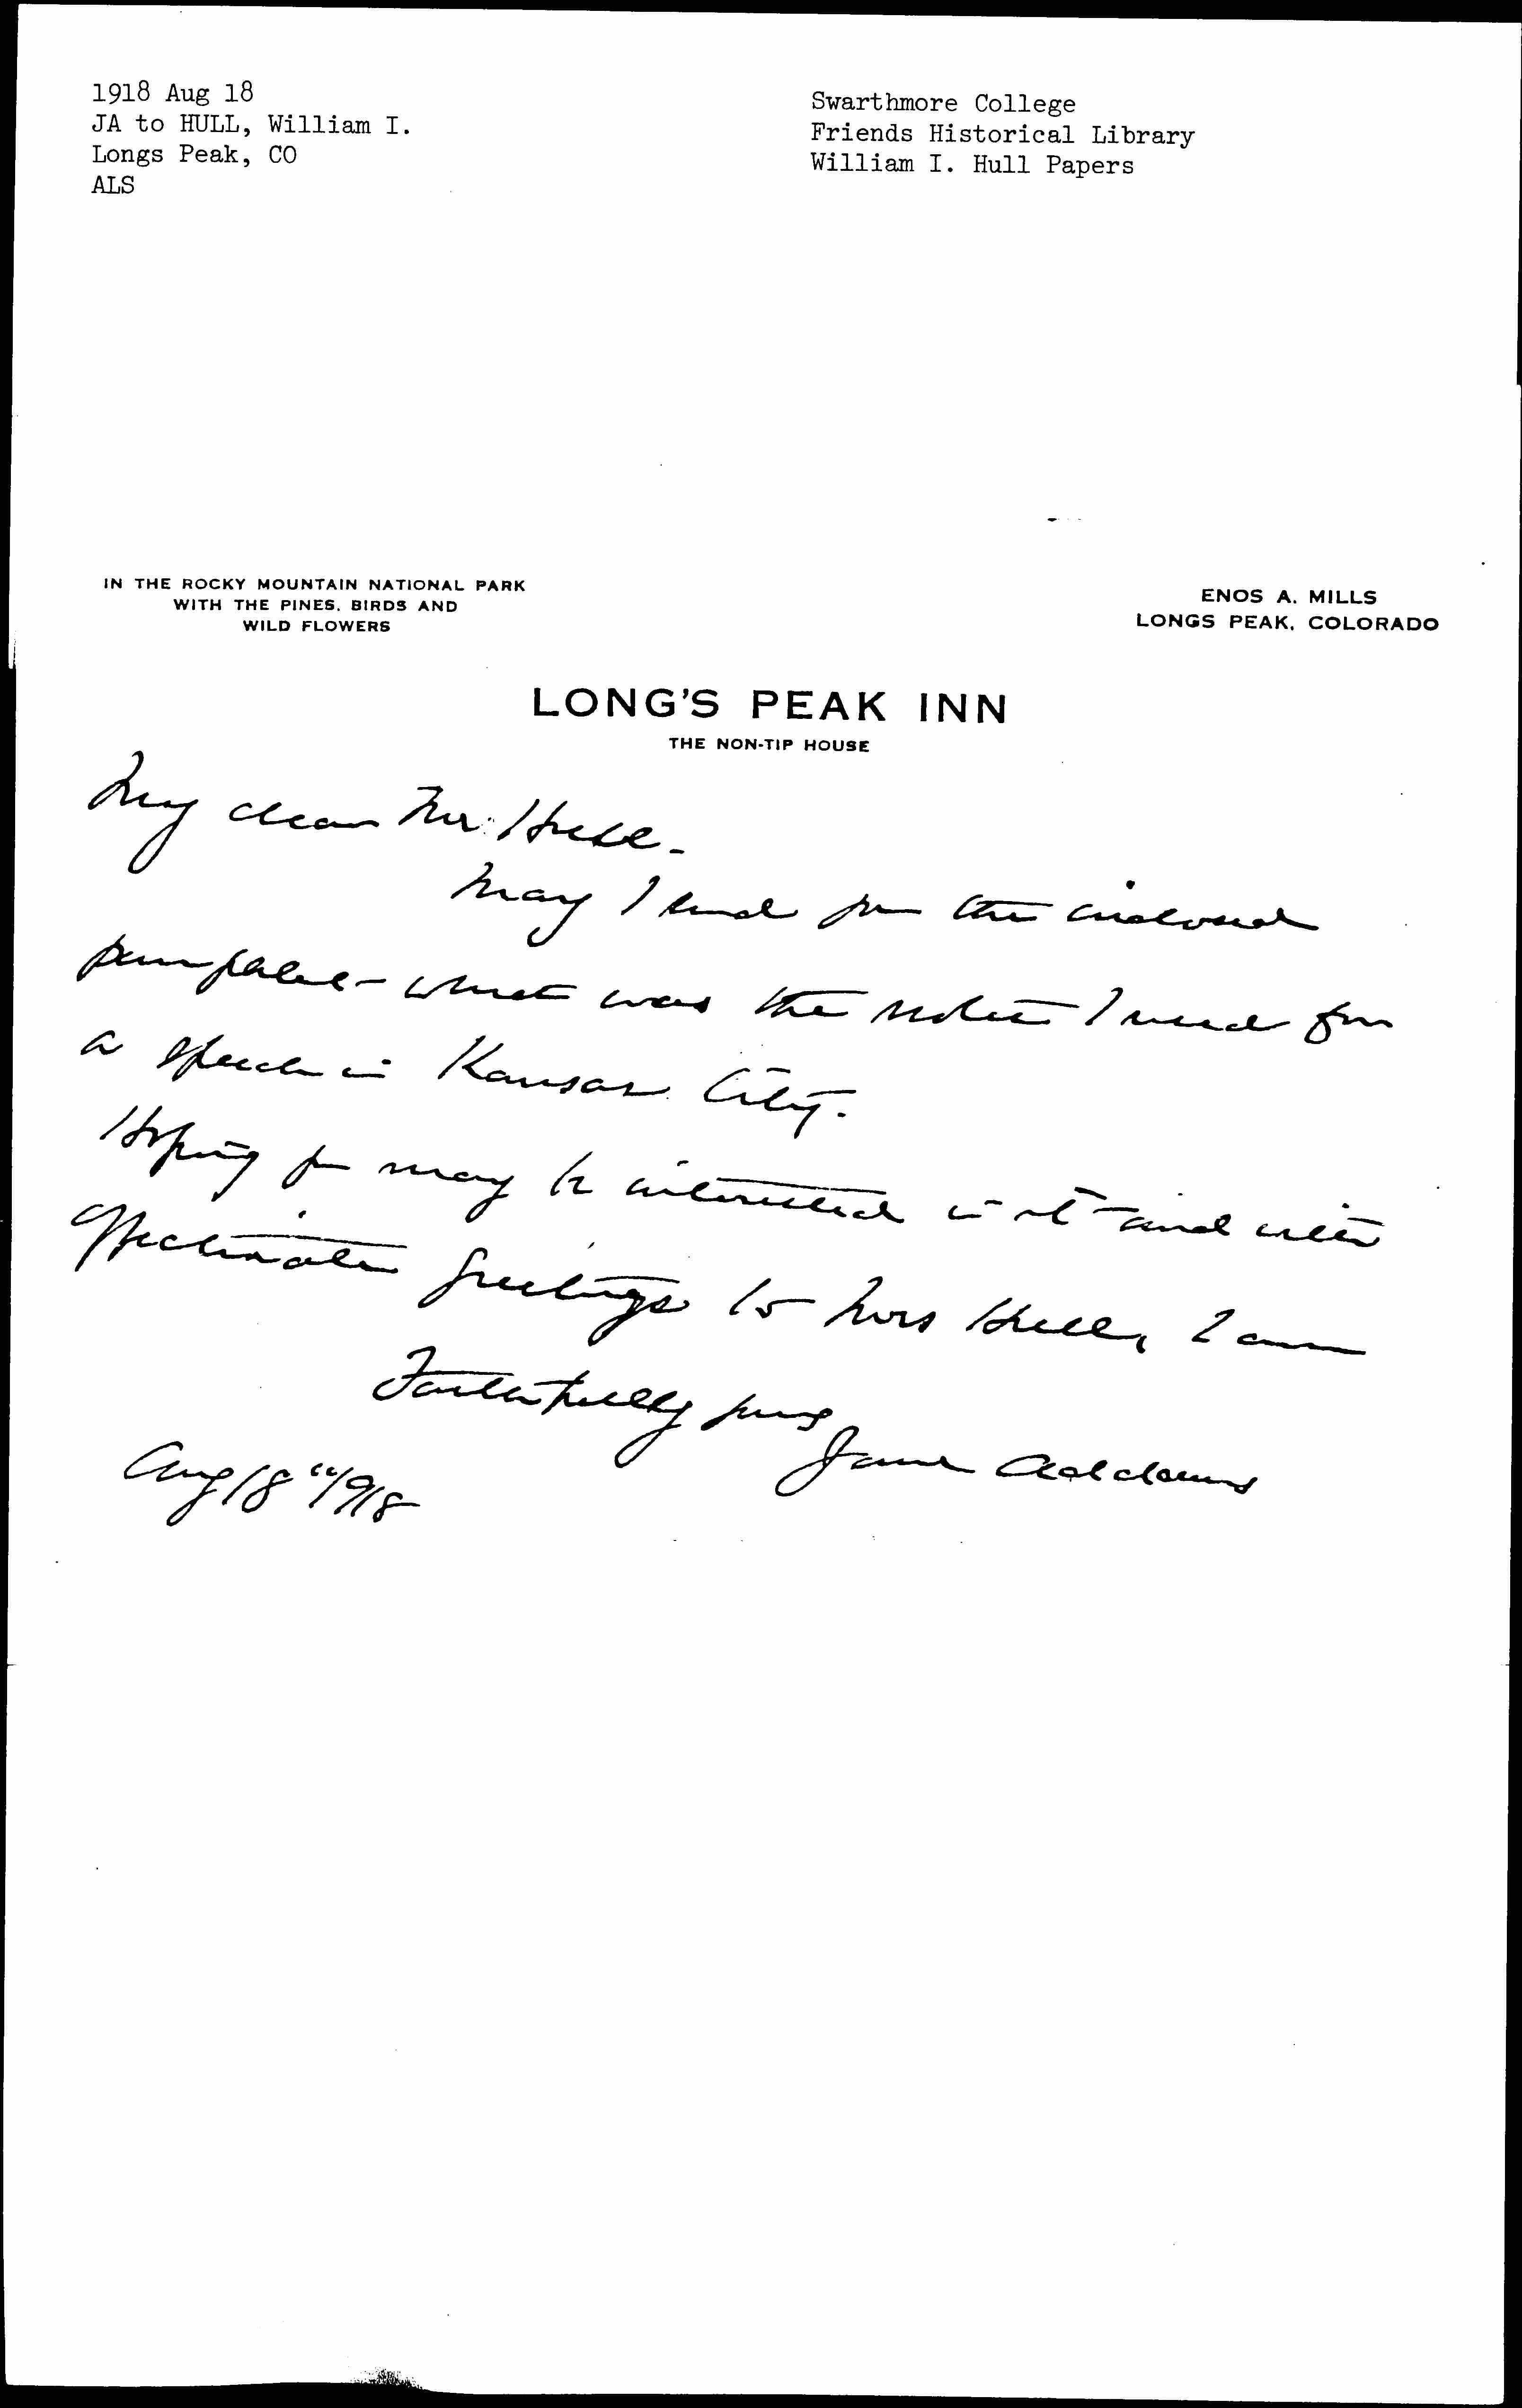 1918 Aug 18
JA to HULL, William I.
Longs Peak, CO
ALS
Swarthmore College
Friends Historical Library
William I. Hull Papers
IN THE ROCKY MOUNTAIN NATIONAL PARK
WITH THE PINES, BIRDS AND
WILD FLOWERS
ENOS A. MILLS
LONGS PEAK, COLORADO
LONG'S PEAK INN
THE NON-TIP HOUSE
My dear Mr. Hull -
May I send you the inclosed
pamphlet - what was the notes I used for
a speech in Kansas City.
Hoping you may be interested in it - and with
affectionate greetings to Mrs Hull, I am
Faithfully yours
Jane Addams
Aug 18" 1918